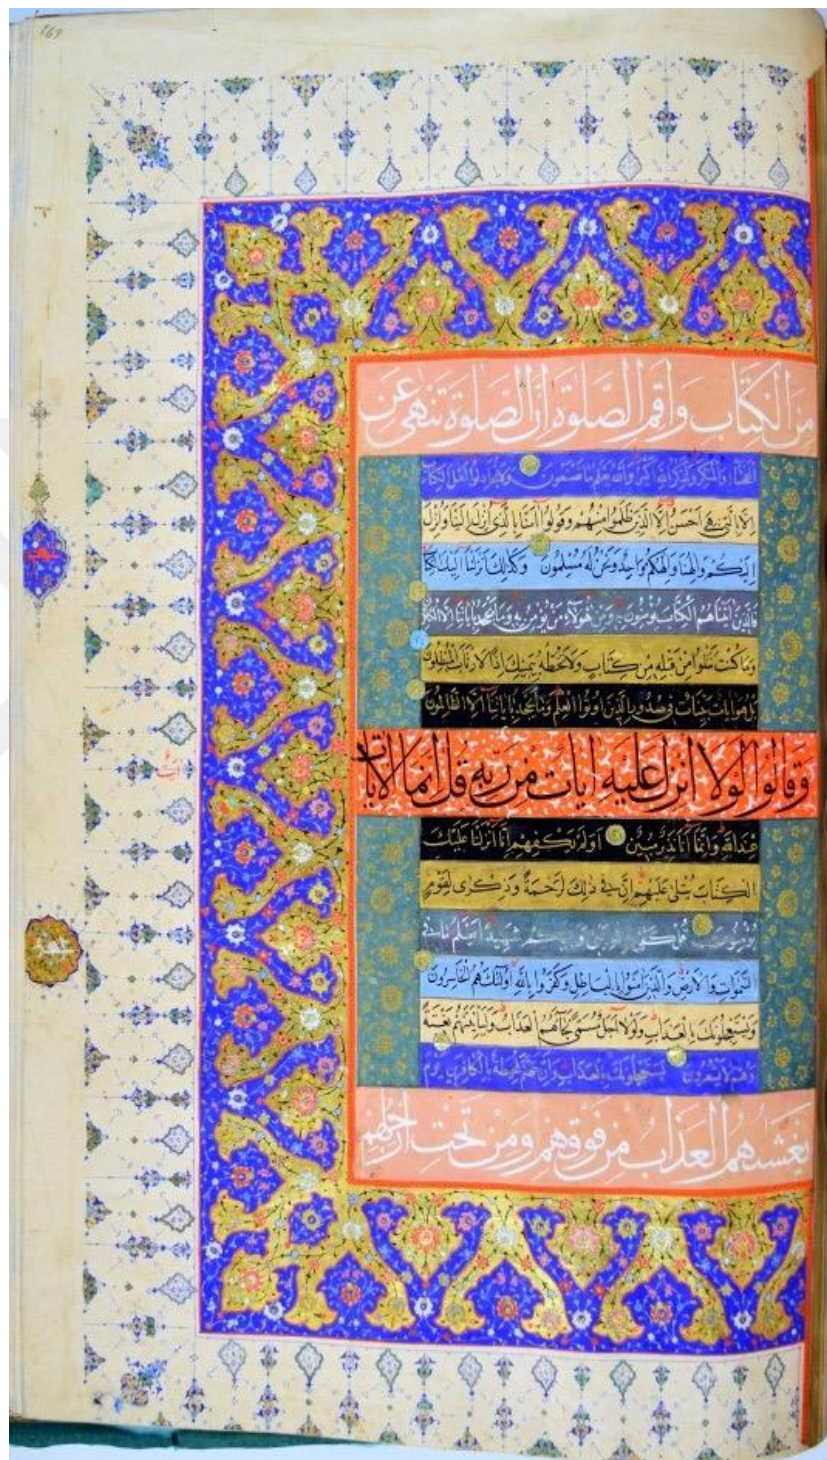 مِنَ الْكِتَابِ وَاَقِمِ الصَّلٰوةَ اِنَّ الصَّلٰوةَ تَنْهٰى عَنِ
الفحشاء والمنكر ولذكر الله اكبر والله يعلم ما تصنعون ولا تجادلوا اهل الكتاب
الا بالتي هي احسن الا الذين ظلموا منهم وقولوا آمنا بالذي انزل الينا وانزل
اليكم والهنا والهكم واحد ونحن له مسلمون وكذلك انزلنا اليك الكتاب
فالذين آتيناهم الكتاب يؤمنون به ومن هؤلاء من يؤمن به وما يجحد باياتنا الا الكافرون
وما كنت تتلوا من قبله من كتاب ولا تخطه بيمينك اذا لارتاب المبطلون
بل هو ايات بينات في صدور الذين اوتوا العلم وما يجحد باياتنا الا الظالمون
وقالوا لولا انزل عليه ايات من ربه قل انما الايات
عند الله وانما انا نذير مبين اولم يكفهم انا انزلنا عليك
الكتاب يتلى عليهم ان في ذلك لرحمة وذكرى لقوم
يؤمنون قل كفى
السموات والارض والذين امنوا بالباطل وكفروا بالله اولئك هم الخاسرون
ويستعجلونك بالعذاب ولولا اجل مسمى لجاءهم العذاب وليأتينهم بغتة
وهم لا يشعرون يستعجلونك بالعذاب وان جهنم لمحيطة بالكافرين يوم
يغشيهم العذاب من فوقهم ومن تحت ارجلهم